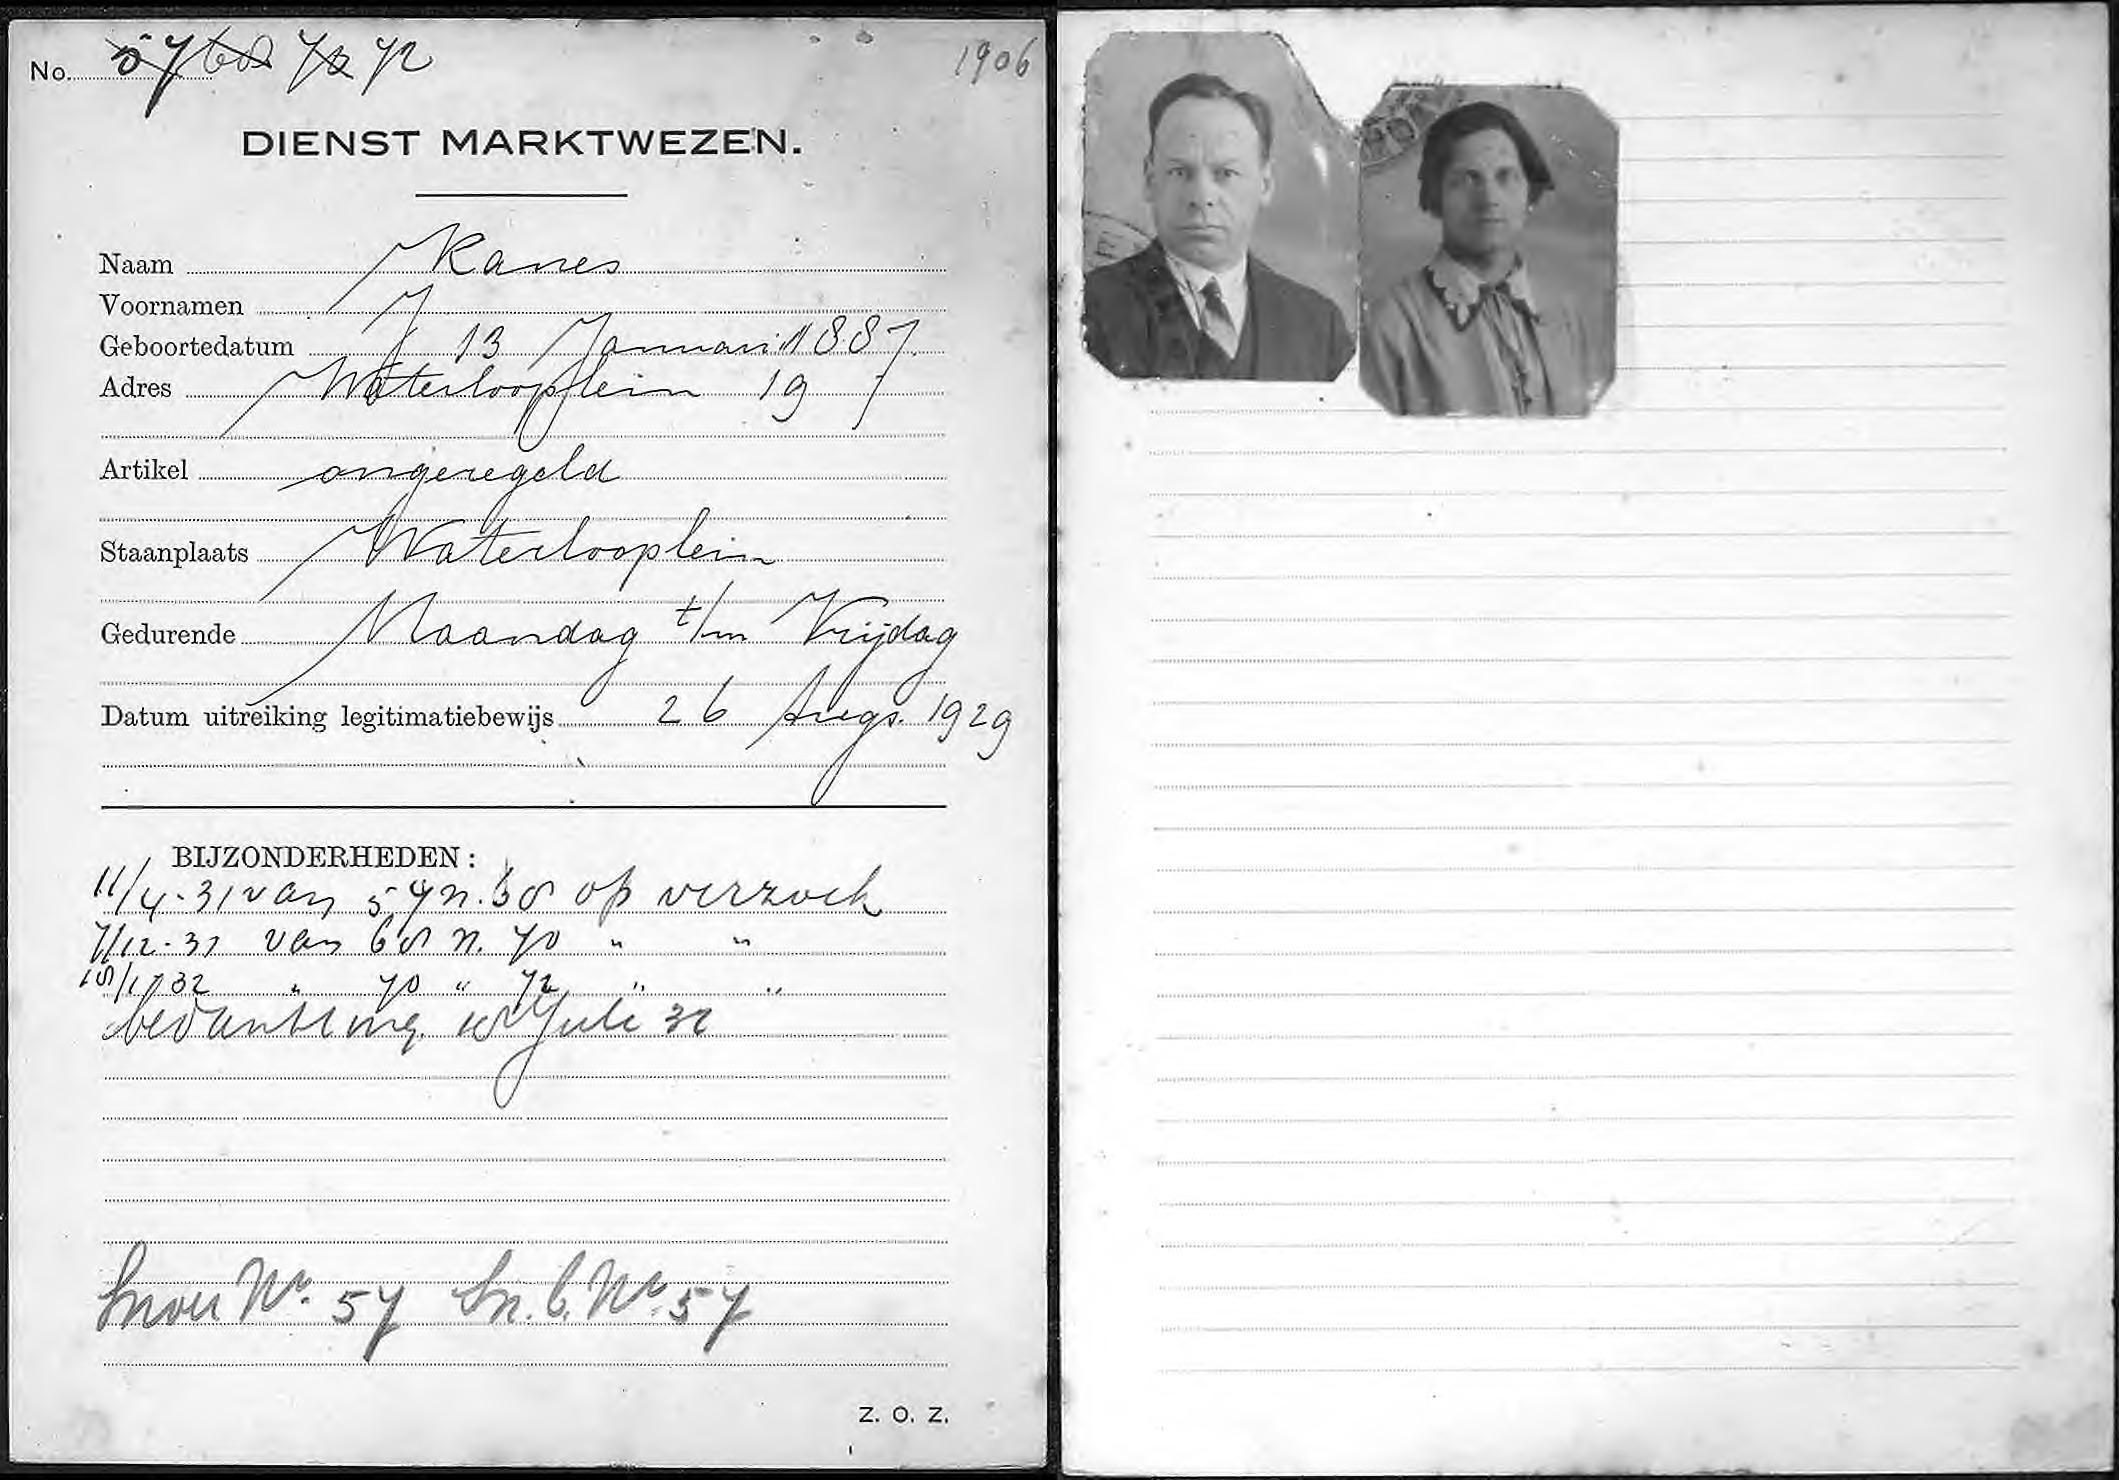 No. 57 68 70 72
1906
DIENST MARKTWEZEN.
Naam Kanes
Voornamen J
Geboortedatum 13 Januari 1887.
Adres Waterlooplein 19
Artikel ongeregeld
Staanplaats Waterlooplein
Gedurende Maandag t/m Vrijdag
Datum uitreiking legitimatiebewijs 26 Augs. 1929
BIJZONDERHEDEN:
11/4-31 van 57 n. 68 op verzoek
7/12-31 van 68 n. 70 " "
18/1 32 " 70 " 72 " "
bedanking 18 Juli 32
Snoer Nr. 57 Sn. C. Nr. 57
Z. O. Z.